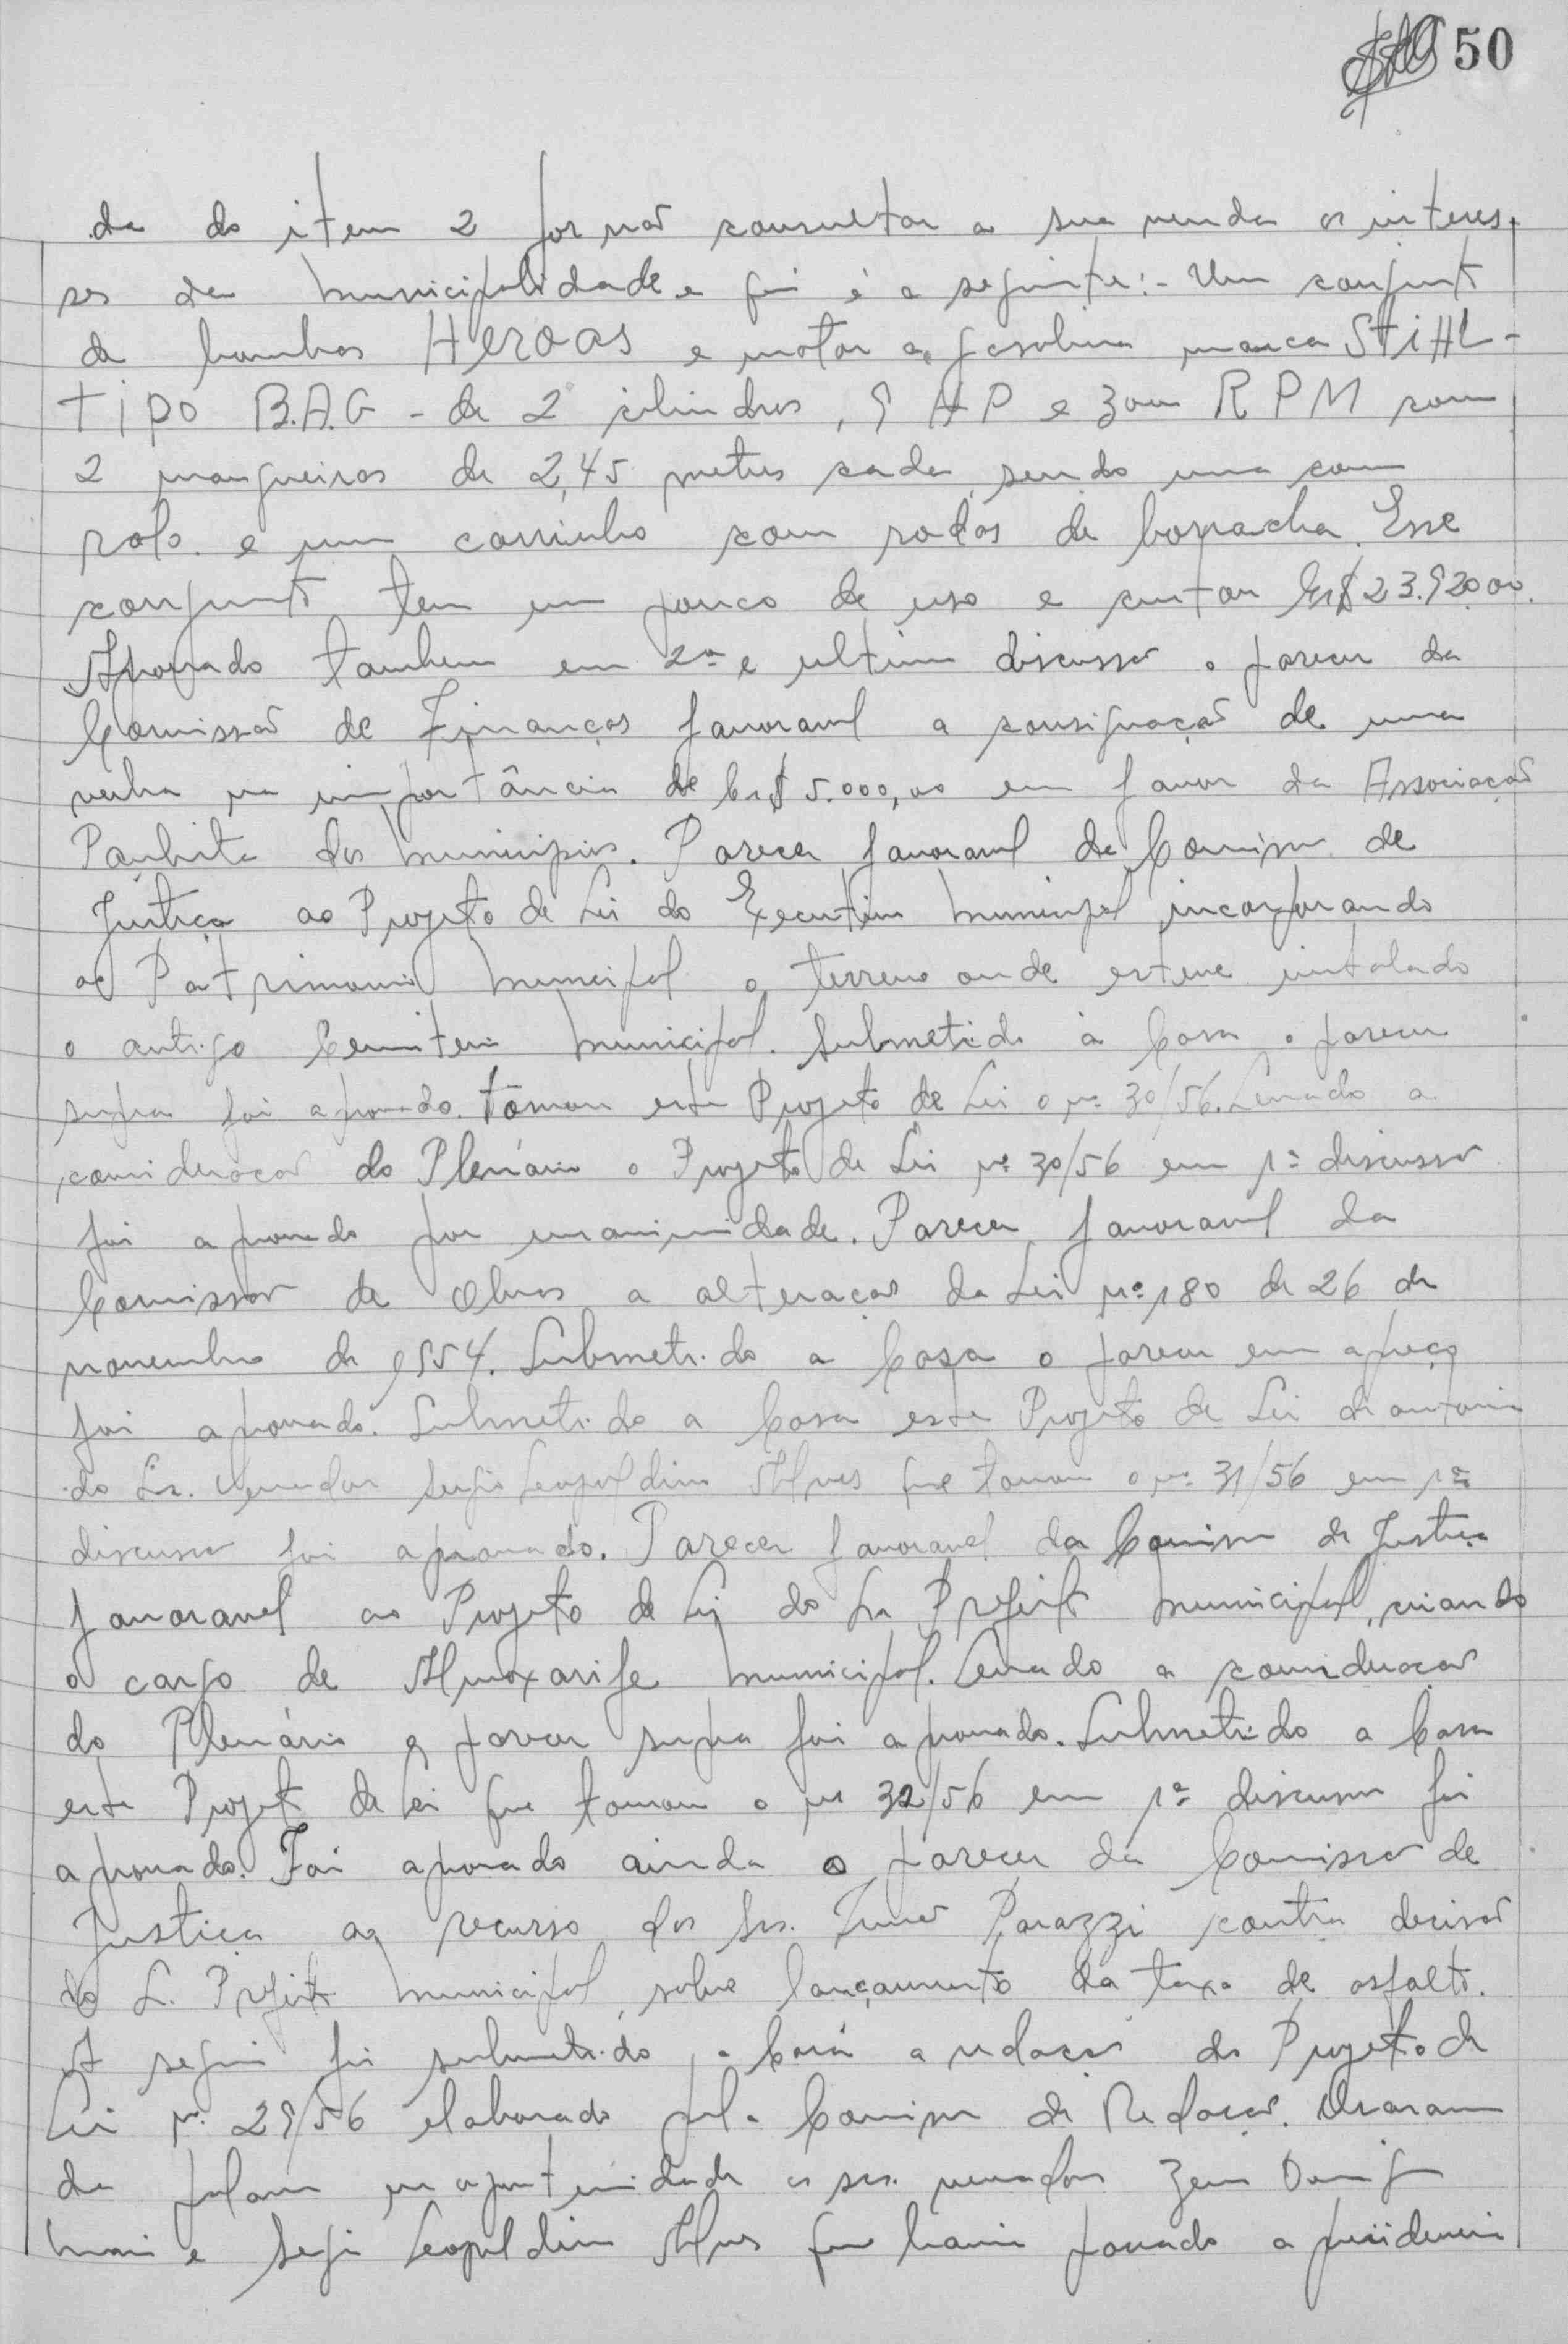 50
da do item 2 por não consultar a sua venda os interes-
ses da Municipalidade e que é a seguinte:- Um conjunto
de bombas Heroas e motor a gasolina marca STIHL-
tipo B.A.G - de 2 cilindros, 9 HP e 3000 RPM com
2 mangueiras de 2,45 metros cada, sendo uma com
ralo e um carrinho com rodas de borracha. Esse
conjunto tem um pouco de uso e custou Cr$ 23.920,00.
Aprovado tambem em 2ª e ultima discussão o parecer da
Comissão de Finanças favoravel a consignação de uma
verba na importância de Cr$ 5.000,00 em favor da Associação
Paulista dos Municipios. Parecer favoravel da Comissão de
Justiça ao Projeto de Lei do Executivo Municipal incorporando
ao Patrimonio Municipal o terreno onde esteve instalado
o antigo Cemiterio Municipal. Submetido à Casa o parecer
supra foi aprovado. Tomou este Projeto de Lei o nº 30/56. Levado a
consideração do Plenário o Projeto de Lei nº 30/56 em 1ª discussão
foi aprovado por unanimidade. Parecer favoravel da
Comissão de Obras a alteração da Lei nº 180 de 26 de
novembro de 1954. Submetido a Casa o parecer em apreço
foi aprovado. Submetido a Casa este Projeto de Lei de autoria
do Sr. Vereador Sergio Leopoldino Alves que tomou o nº 31/56 em 1ª
discussão foi aprovado. Parecer favoravel da Comissão de Justiça
favoravel ao Projeto de Lei do Sr. Prefeito Municipal, criando
o cargo de Almoxarife Municipal. Levado a consideração
do Plenário o parecer supra foi aprovado. Submetido a Casa
este Projeto de Lei que tomou o nº 32/56 em 1ª discussão foi
aprovado. Foi aprovado ainda o parecer da Comissão de
Justiça ao recurso dos Srs. Parazzi contra decisão
do Sr. Prefeito Municipal, sobre lançamento da taxa de asfalto.
A seguir foi submetido a Casa a redação do Projeto de
Lei nº 29/56 elaborado pela Comissão de Redação. Usaram
da palavra na oportunidade os srs. vereadores
e Sergio Leopoldino Alves que havia passado a presidencia